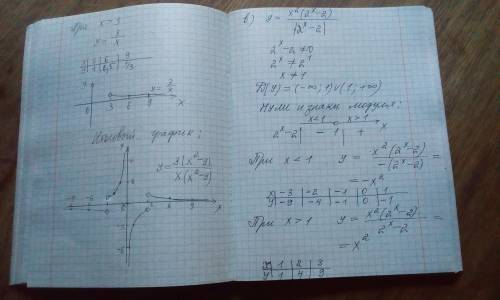 При x > 3
y = 3/x
x 3 6 9
y 1 0,5 1/3
y
y = 3/x
3 6 9 x
Итоговый график:
y
y = 3|x²-9| / x(x²-9)
-9 -6 -3 0 3 6 9 x
в) y = x²(2ˣ-2) / |2ˣ-2|
2ˣ-2≠0
2ˣ ≠ 2¹
x ≠ 1
D(y) = (-∞; 1)∪(1; +∞)
Нули и знаки модуля:
x<1 x>1
x
2ˣ-2 - 1 +
При x < 1 y = x²(2ˣ-2) / -(2ˣ-2) =
= -x²
x -3 -2 -1 0 1
y -9 -4 -1 0 -1
При x > 1 y = x²(2ˣ-2) / 2ˣ-2 =
= x²
x 1 2 3
y 1 4 9